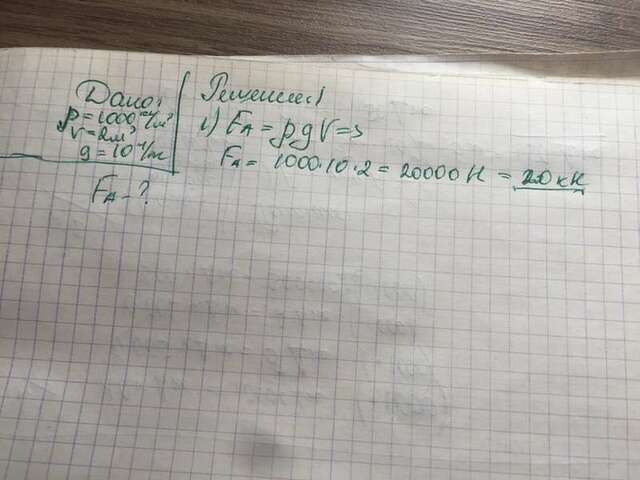 Дано:
ρ=1000 кг/м³
V=2м³
g=10 Н/кг
F_A-?
Решение:
1) F_A = ρ g V =>
F_A = 1000·10·2 = 20000 Н = 20 кН